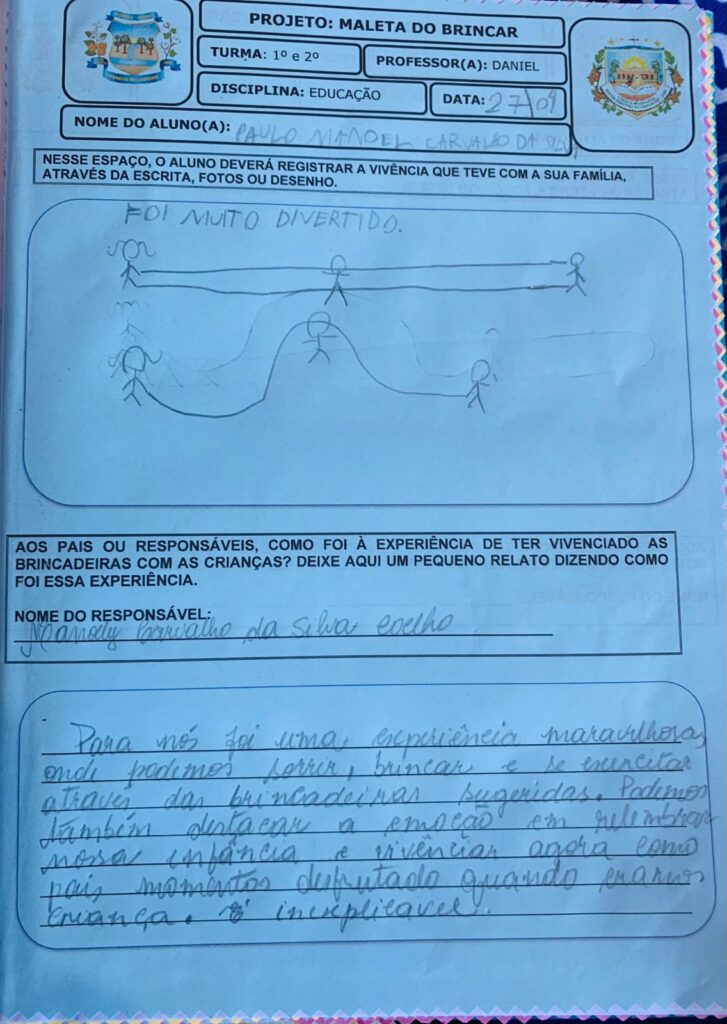 PROJETO: MALETA DO BRINCAR
TURMA: 1º e 2º
PROFESSOR(A): DANIEL
DISCIPLINA: EDUCAÇÃO
DATA: 27/09
NOME DO ALUNO(A): PAULO MANOEL CARVALHO DA SILVA
NESSE ESPAÇO, O ALUNO DEVERÁ REGISTRAR A VIVÊNCIA QUE TEVE COM A SUA FAMÍLIA,
ATRAVÉS DA ESCRITA, FOTOS OU DESENHO.
FOI MUITO DIVERTIDO.
AOS PAIS OU RESPONSÁVEIS, COMO FOI À EXPERIÊNCIA DE TER VIVENCIADO AS
BRINCADEIRAS COM AS CRIANÇAS? DEIXE AQUI UM PEQUENO RELATO DIZENDO COMO
FOI ESSA EXPERIÊNCIA.
NOME DO RESPONSÁVEL:
Carvalho da Silva Coelho
Para nós foi uma experiência maravilhosa,
onde podemos sorrir, brincar e se exercitar
através das brincadeiras sugeridas. Podemos
também destacar a emoção em relembrar
nossa infância e vivênciar agora como
pais momentos desfrutado quando eramos
criança. É inexplicavel.